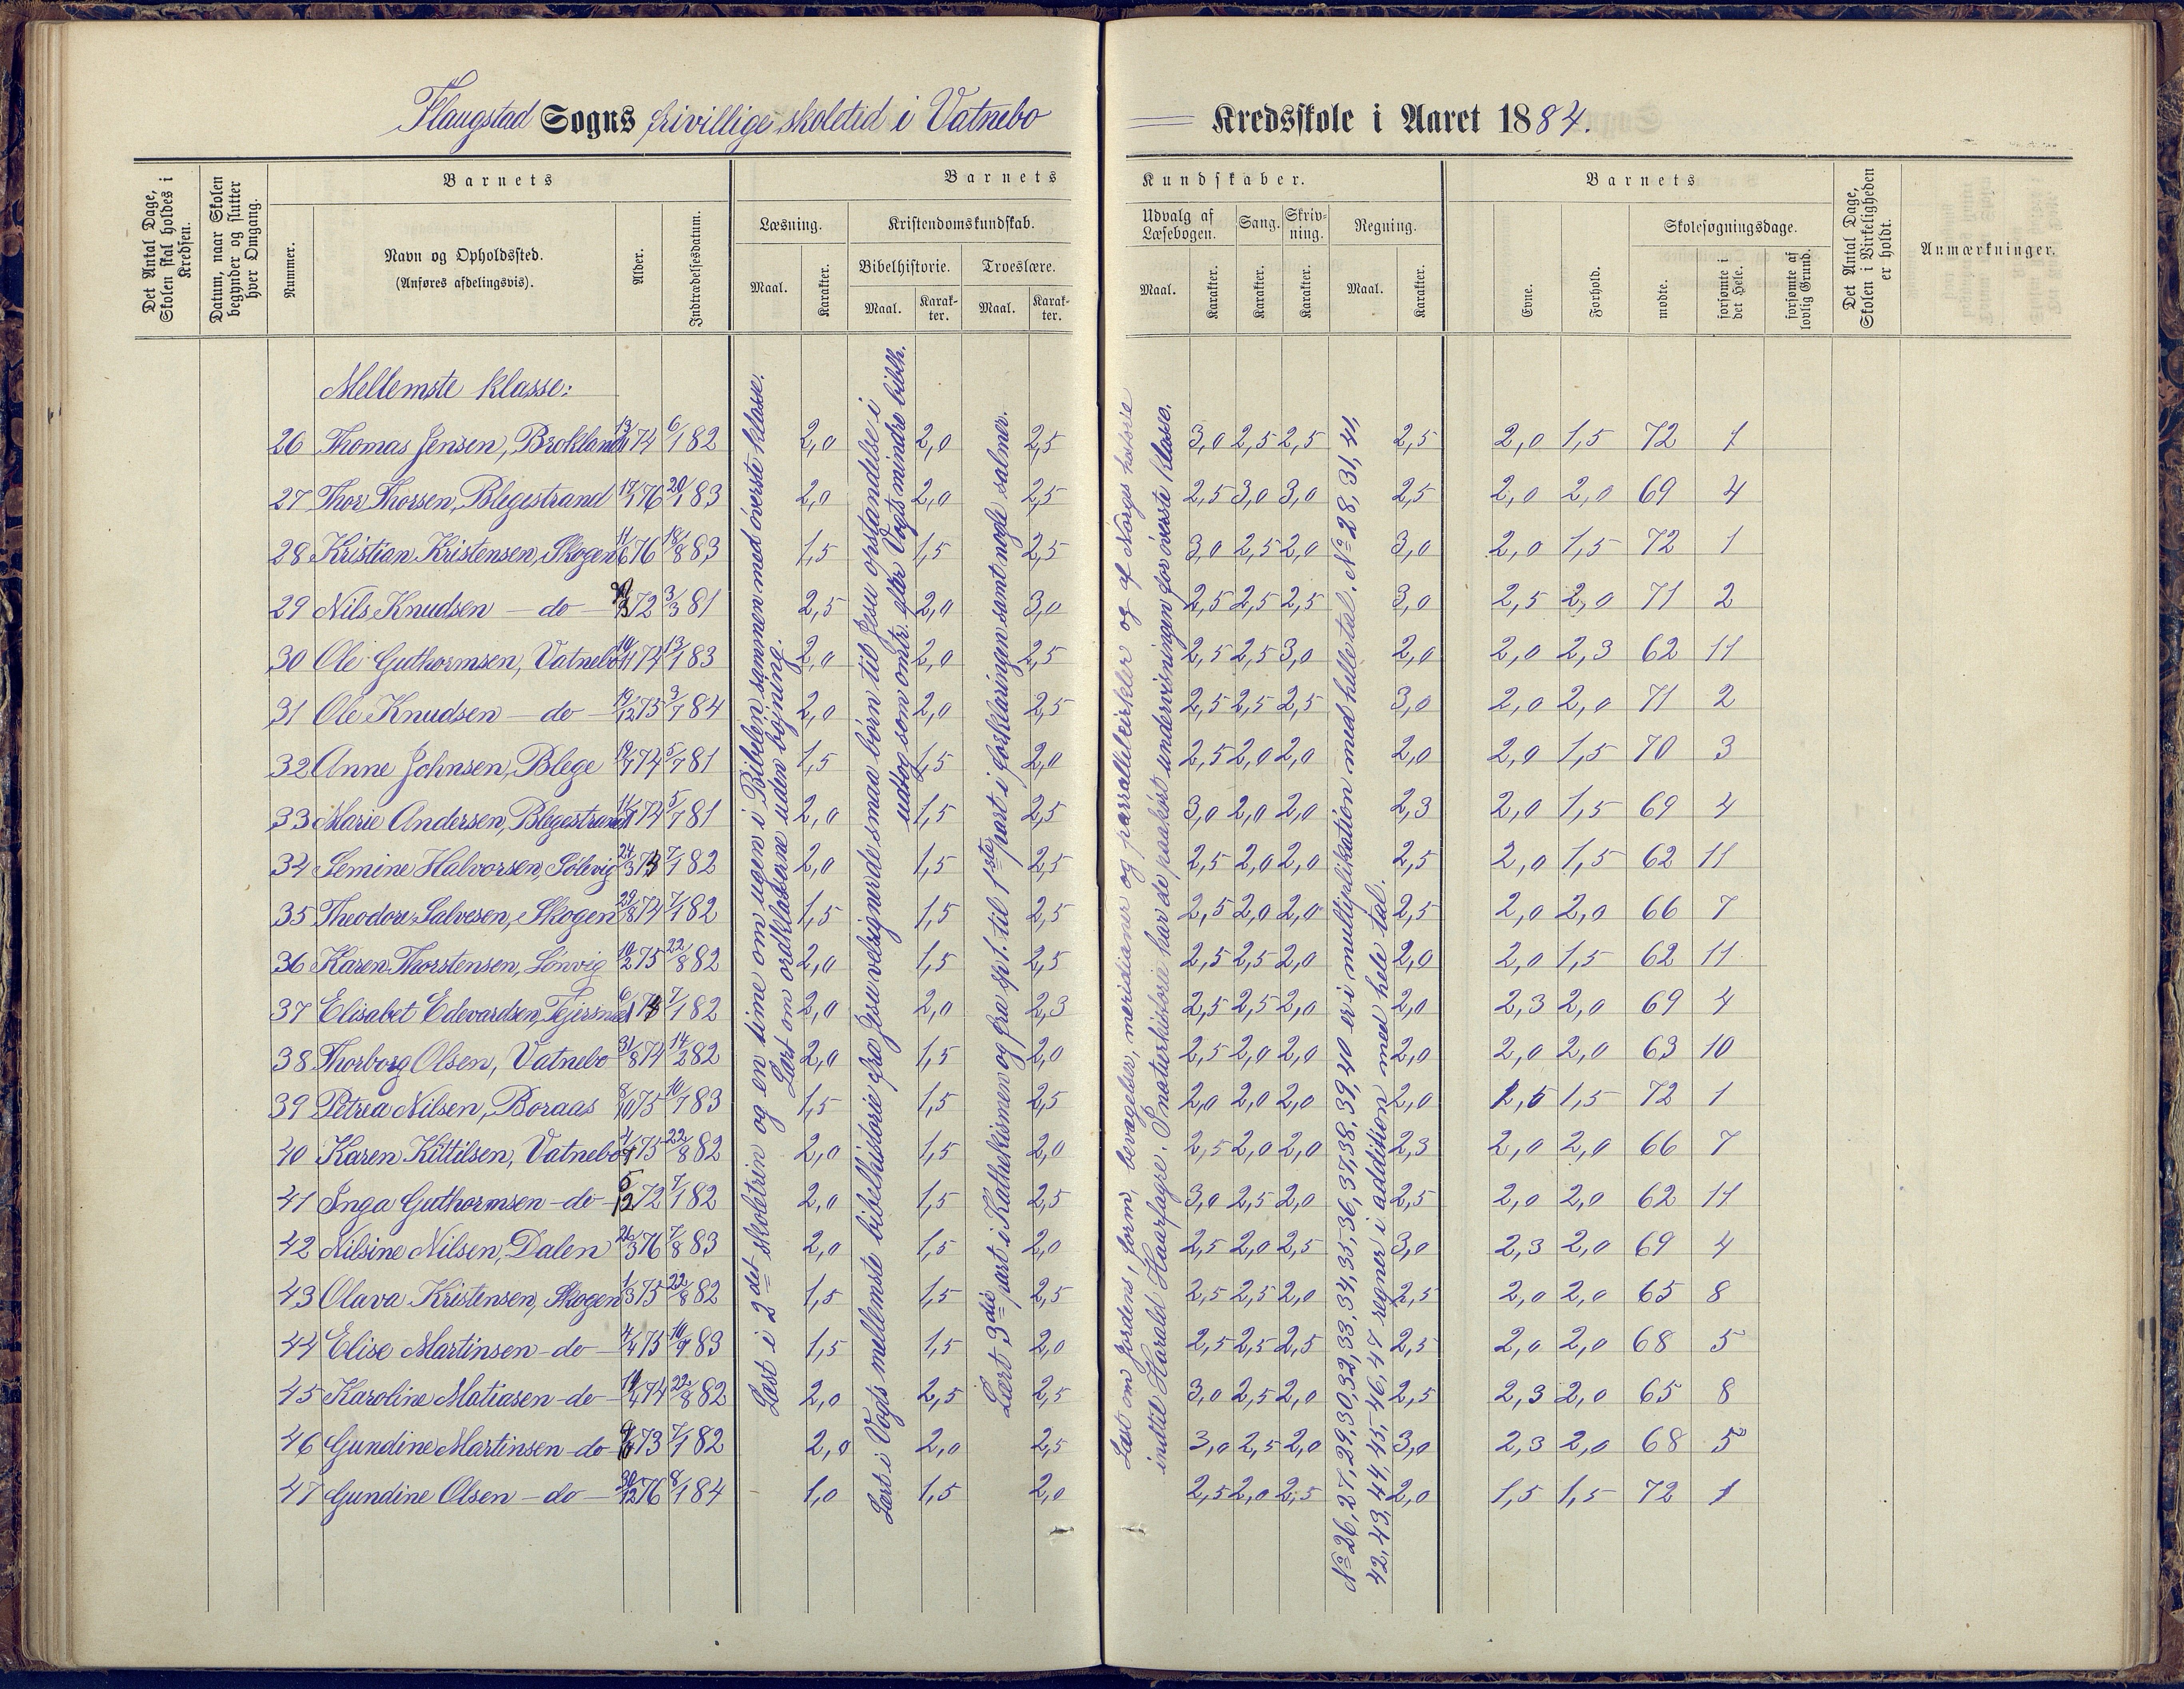 Flaugstad Sogns frivillige skoletid i Vatnebo = Kredsskole i Aaret 1884.
Det Antal Dage, Skolen skal holdes i Kredsen.
Datum, naar Skolen begynder og slutter hver Omgang.
Barnets
Nummer.
Navn og Opholdssted.
(Anføres afdelingsvis).
Alder.
Indtrædelsesdatum.
Barnets Kundskaber.
Læsning.
Maal.
Karakter.
Kristendomskundskab.
Bibelhistorie.
Maal.
Karakter.
Troeslære.
Maal.
Karakter.
Udvalg af Læsebogen.
Maal.
Karakter.
Sang.
Karakter.
Skrivning.
Karakter.
Regning.
Maal.
Karakter.
Barnets
Evne.
Forhold.
Skolesøgningsdage.
mødte.
forsømte i det Hele.
forsømte af lovlig Grund.
Det Antal Dage, Skolen i Virkeligheden er holdt.
Anmærkninger.
Mellemste klasse:
26 Thomas Jensen, Brokland 13/1 74 6/1 82 2,0 2,0 2,5 3,0 2,5 2,5 2,5 2,0 1,5 72 1
27 Thor Thorsen, Blegestrand 17/1 76 20/1 83 2,0 2,0 2,5 2,5 3,0 3,0 2,5 2,0 2,0 69 4
28 Kristian Kristensen, Skogen 11/6 76 18/8 83 1,5 1,5 2,5 3,0 2,5 2,0 3,0 2,0 1,5 72 1
29 Nils Knudsen — do — 72 3/3 81 2,5 2,0 3,0 2,5 2,5 2,5 3,0 2,5 2,0 71 2
30 Ole Guthormsen, Vatnebo 74 13/1 83 2,0 2,0 2,5 2,5 2,5 3,0 2,0 2,0 2,3 62 11
31 Ole Knudsen — do — 19/12 75 3/7 84 2,0 2,0 2,5 2,5 2,5 2,5 3,0 2,0 2,0 71 2
32 Anne Johnsen, Blege 19/7 74 5/7 81 1,5 1,5 2,0 2,5 2,0 2,0 2,0 2,0 1,5 70 3
33 Marie Andersen, Blegestrand 74 5/7 81 2,0 1,5 2,5 3,0 2,0 2,0 2,3 2,0 1,5 69 4
34 Semine Halvorsen, Sølevig 24/3 74 7/1 82 2,0 1,5 2,5 2,5 2,0 2,0 2,5 2,0 1,5 62 11
35 Theodore Salvesen, Skogen 29/8 74 7/1 82 1,5 1,5 2,5 2,5 2,0 2,0 2,5 2,0 2,0 66 7
36 Karen Thorstensen, Lønvig 10/2 75 22/8 82 2,0 1,5 2,5 2,5 2,5 2,0 2,0 2,0 1,5 62 11
37 Elisabet Edevardsen, Tejersnæs 6/1 74 7/1 82 2,0 2,0 2,3 2,5 2,5 2,0 2,0 2,3 2,0 69 4
38 Thorborg Olsen, Vatnebo 31/8 74 14/2 82 2,0 1,5 2,0 2,5 2,0 2,0 2,0 2,0 2,0 63 10
39 Petrea Nilsen, Boraas 8/10 75 10/7 83 1,5 1,5 2,5 2,0 2,0 2,0 2,0 1,5 1,5 72 1
40 Karen Kittilsen, Vatnebo 75 22/8 82 2,0 1,5 2,0 2,5 2,0 2,0 2,3 2,0 2,0 66 7
41 Inga Guthormsen — do — 5/12 72 7/1 82 2,0 1,5 2,5 3,0 2,5 2,0 2,5 2,0 2,0 62 11
42 Nilsine Nilsen, Dalen 26/3 76 7/8 83 2,0 1,5 2,0 2,5 2,0 2,5 3,0 2,3 2,0 69 4
43 Olava Kristensen, Skogen 1/3 75 22/8 82 1,5 1,5 2,5 2,5 2,5 2,0 2,5 2,0 2,0 65 8
44 Elise Martinsen — do — 4/4 75 10/7 83 1,5 1,5 2,0 2,5 2,5 2,5 2,5 2,0 2,0 68 5
45 Karoline Matiasen — do — 74 22/8 82 2,0 2,5 2,5 3,0 2,5 2,0 2,5 2,3 2,0 65 8
46 Gundine Martinsen — do — 73 7/1 82 2,0 2,0 2,5 3,0 2,5 2,0 3,0 2,3 2,0 68 5
47 Gundine Olsen — do — 30/12 76 8/1 84 1,0 1,5 2,0 2,5 2,0 2,5 2,0 1,5 1,5 72 1
Læst i 2det skoletrin og en time om ugen i Bibelen sammen med øverste klasse.
Lært om ordklasserne uden bøining.
Lært i Vogts mellemste bibelhistorie fra Jesu velsigner de smaa børn til Jesu opstandelse i
udtog som omtr. efter Vogts mindre bibh.
Lært 3die part i Kathekismen og fra sp 1. til 1ste part i forklaringen samt nogle salmer.
Læst om jordens form, bevægelser, meridianer og parrallelcirkler og af Norges historie
indtil Harald Haarfagre. I naturhistorie har de paahørt undervisningen for øverste klasse.
No 26, 27, 29, 30, 32, 33, 34, 35, 36, 37, 38, 39, 40 er i multiplikation med helle tal. No 28, 31, 41,
42, 43, 44, 45, 46, 47 regner i addition med hele tal.